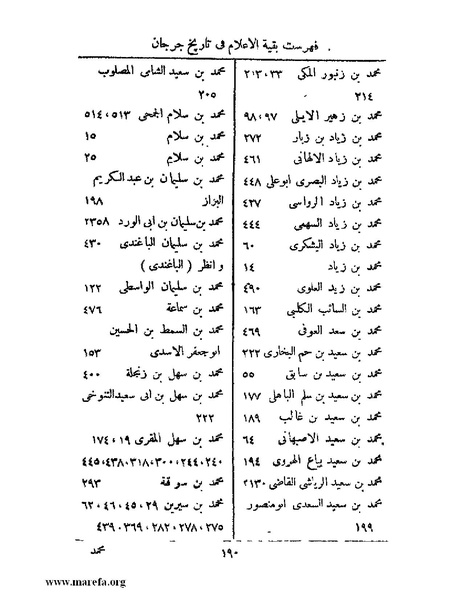 فهرست بقية الاعلام فى تاريخ جرجان
محمد بن زنبور المكى ٣٣، ٢١٣،
٢١٤
محمد بن زهير الايلى ٩٧، ٩٨
محمد بن زياد بن زبار ٢٧٢
محمد بن زياد الالهانى ٤٦١
محمد بن زياد البصرى ابوعلى ٤٤٨
محمد بن زياد الرواسى ٤٣٧
محمد بن زياد السهمى ٤٤٤
محمد بن زياد اليشكرى ٦٠
محمد بن زياد ١٤
محمد بن زيد العلوى ٤٩٠
محمد بن السائب الكلبى ١٦٣
محمد بن سعد العوفى ٤٦٩
محمد بن سعيد بن حم البخارى ٢٢٢
محمد بن سعيد بن سابق ٥٥
محمد بن سعيد بن سلم الباهلى ١٧٧
محمد بن سعيد بن غالب ١٨٩
محمد بن سعيد الاصبهانى ٦٤
محمد بن سعيد بياع الهروى ١٩٤
محمد بن سعيد الرياشى القاضى ٢١٣٠
محمد بن سعيد السعدى ابومنصور
١٩٩
محمد بن سعيد الشامى المصلوب
٢٠٥
محمد بن سلام الجمحى ٥١٣، ٥١٤
محمد بن سلام ١٥
محمد بن سلام ٢٥
محمد بن سليمان بن عبد الكريم
البزاز ١٩٨
محمد بن سليمان بن ابى الورد ٢٣٥٨
محمد بن سليمان الباغندى ٤٣٠
و انظر ( الباغندى )
محمد بن سليمان الواسطى ١٢٢
محمد بن سماعة ٤٧٦
محمد بن السمط بن الحسين
ابوجعفر الاسدى ١٥٣
محمد بن سهل بن زنجلة ٤٠٠
محمد بن سهل بن ابى سعيد التنوخى
٢٢٢
محمد بن سهل المقرى ١٩، ١٧٤،
٢٤٠، ٢٤٤، ٣٠٠، ٣١٨، ٤٣٨، ٤٤٥
محمد بن سوقة ٢٩٣
محمد بن سيرين ٢٩، ٤٥، ٤٦، ٦٢،
٢٧٥، ٢٧٨، ٢٨٢، ٣٦٩، ٤٣٩
١٩٠
محمد
www.marefa.org